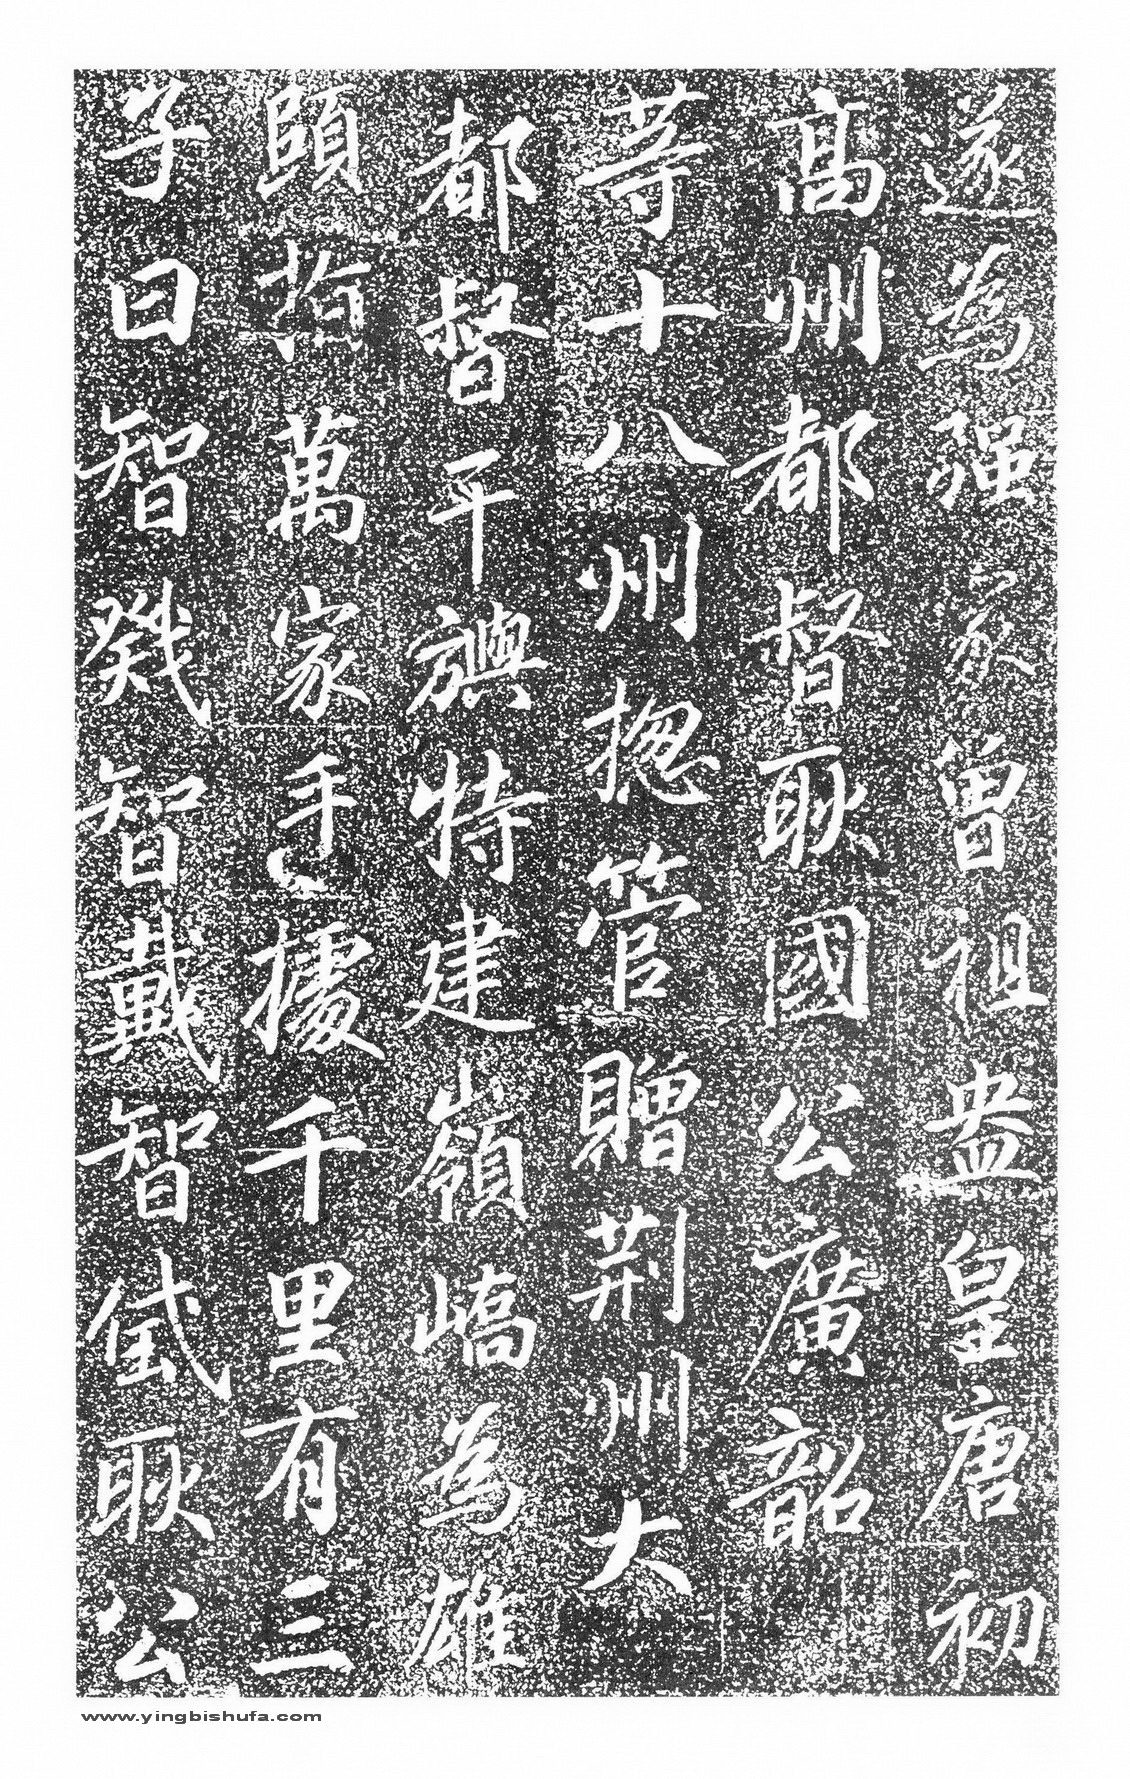 遂為强家曾祖盎皇唐初
高州都督耿國公廣韶
等十八州揔管贈荆州大
都督干旟特建嶺嶠為雄
頤指萬家手據千里有三
子曰智戣智戴智玳耿公
www.yingbishufa.com